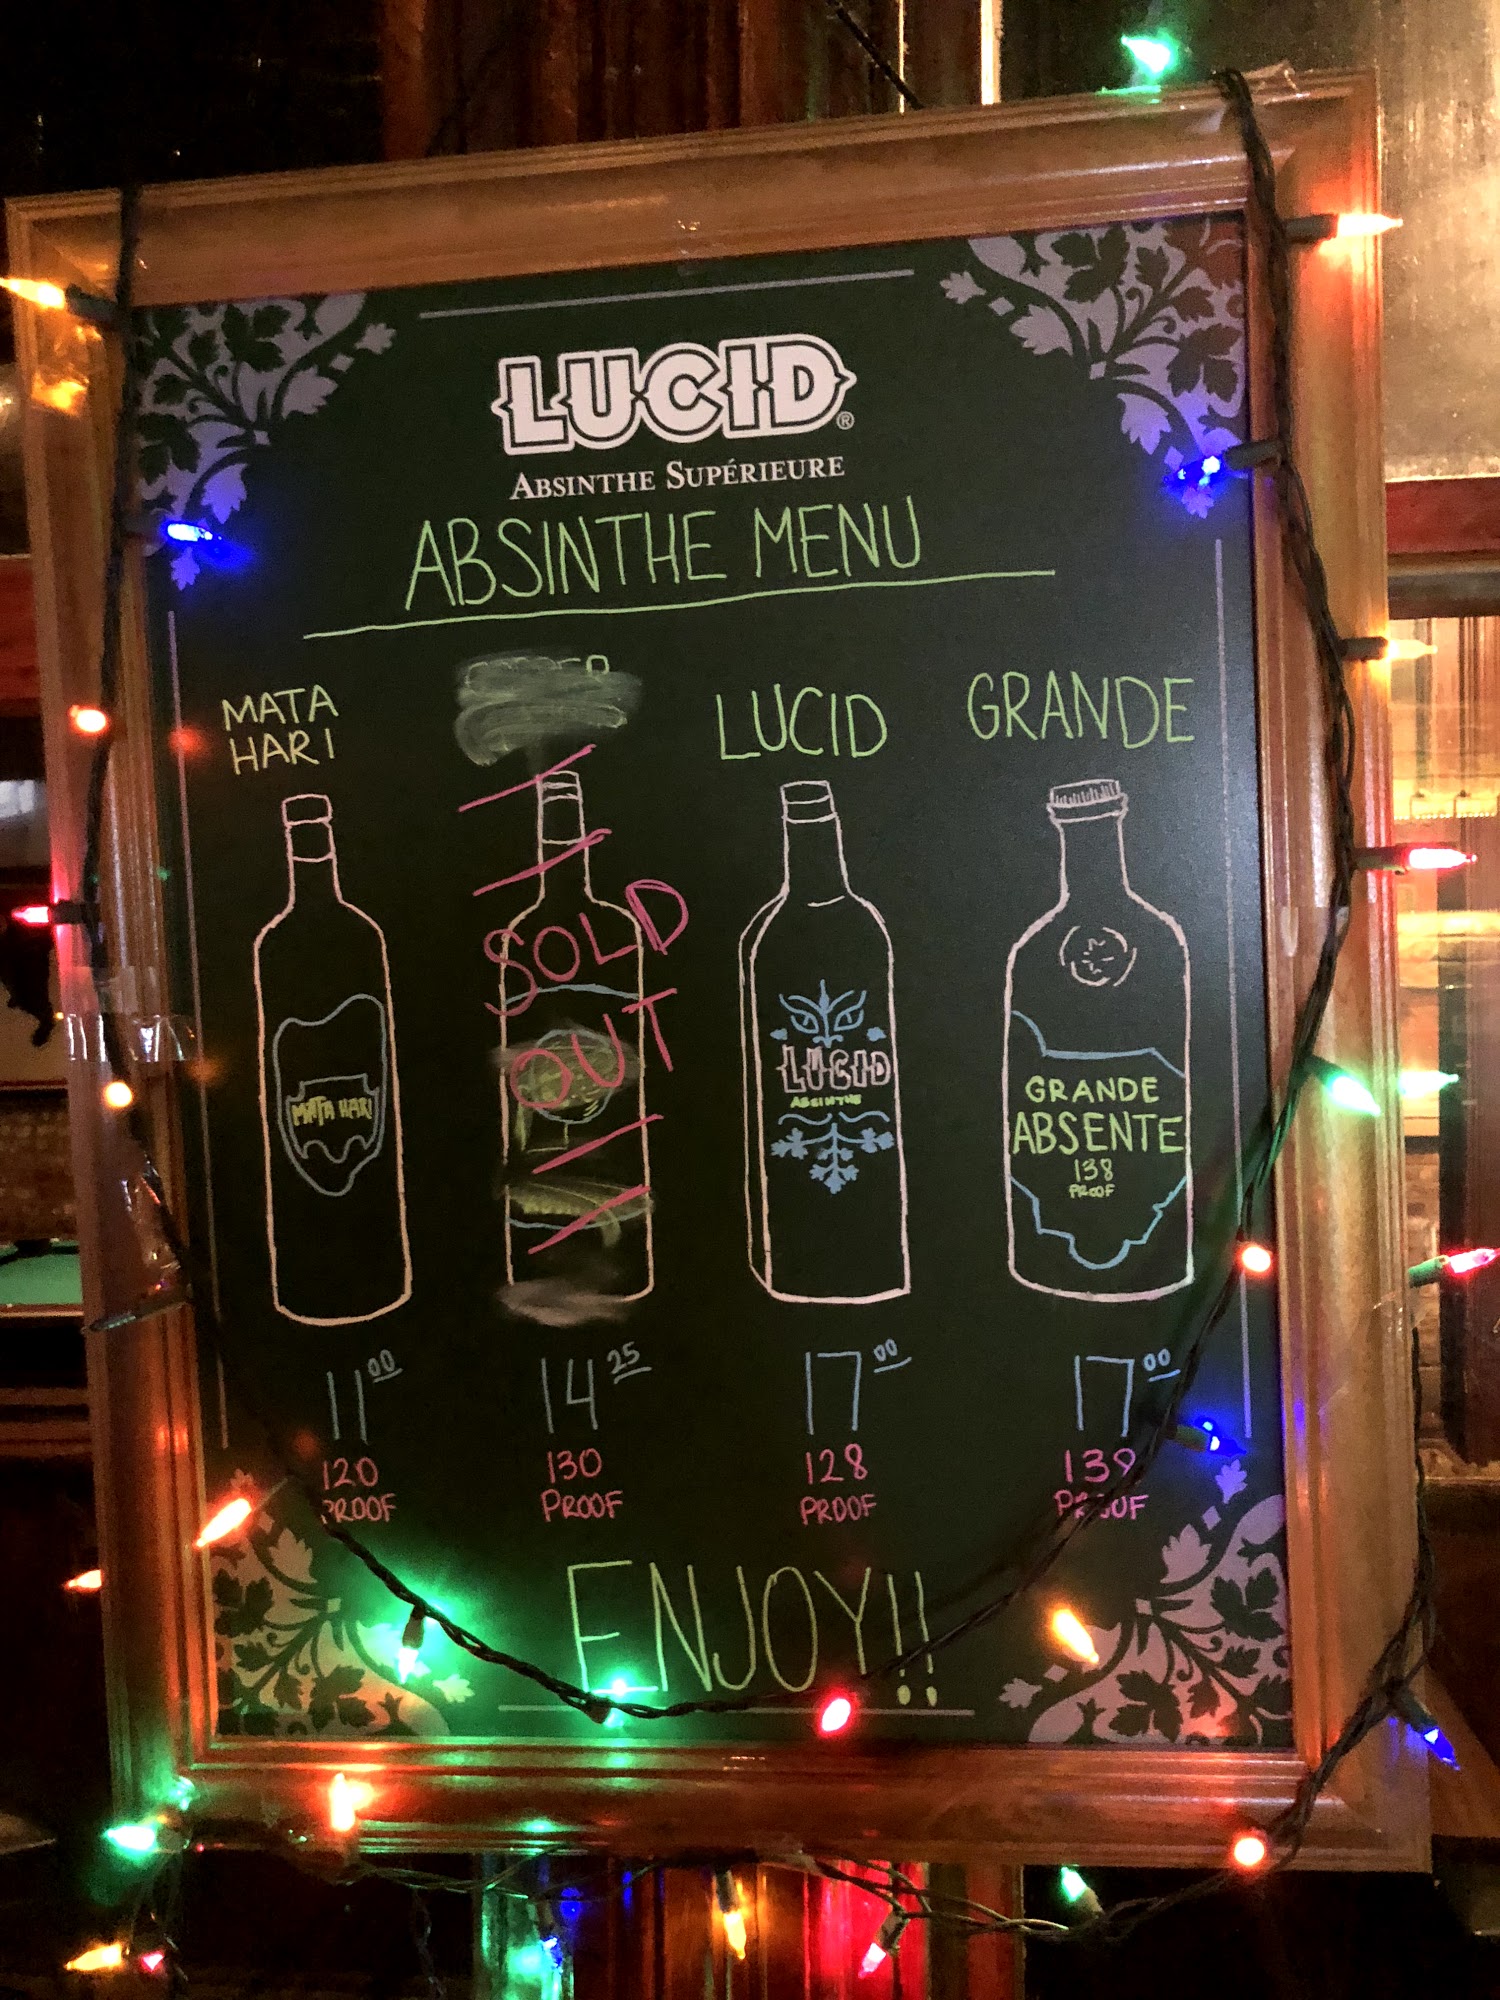 LUCID®
ABSINTHE SUPÉRIEURE
ABSINTHE MENU
MATA
HARI
LUCID
GRANDE
MATA HARI
SOLD
OUT
LUCID
ABSINTHE
GRANDE
ABSENTE
138
PROOF
11 00
120
PROOF
14 25
130
PROOF
17 00
128
PROOF
17 00
139
PROOF
ENJOY!!